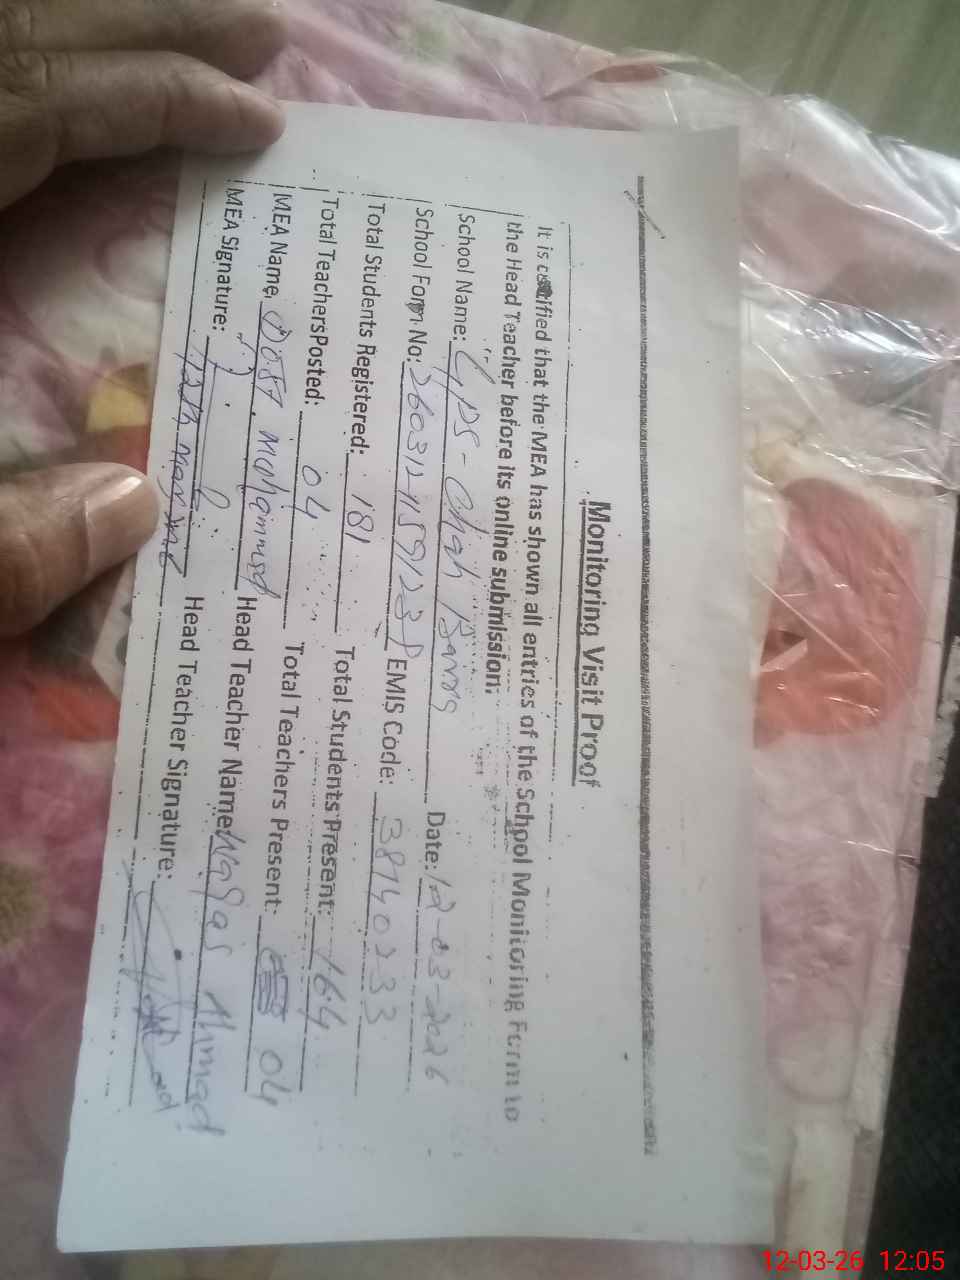 Monitoring Visit Proof
It is certified that the MEA has shown all entries of the School Monitoring Form to
the Head Teacher before its online submission.
School Name: GPS - Chah Date: 12-03-2026
School Form No: EMIS Code: 38140233
Total Students Registered: 181 Total Students Present: 164
Total Teachers Posted: 04 Total Teachers Present: 04
MEA Name: Dost Mohammad Head Teacher Name: Waqas Ahmad
MEA Signature: Head Teacher Signature:
12-03-26 12:05